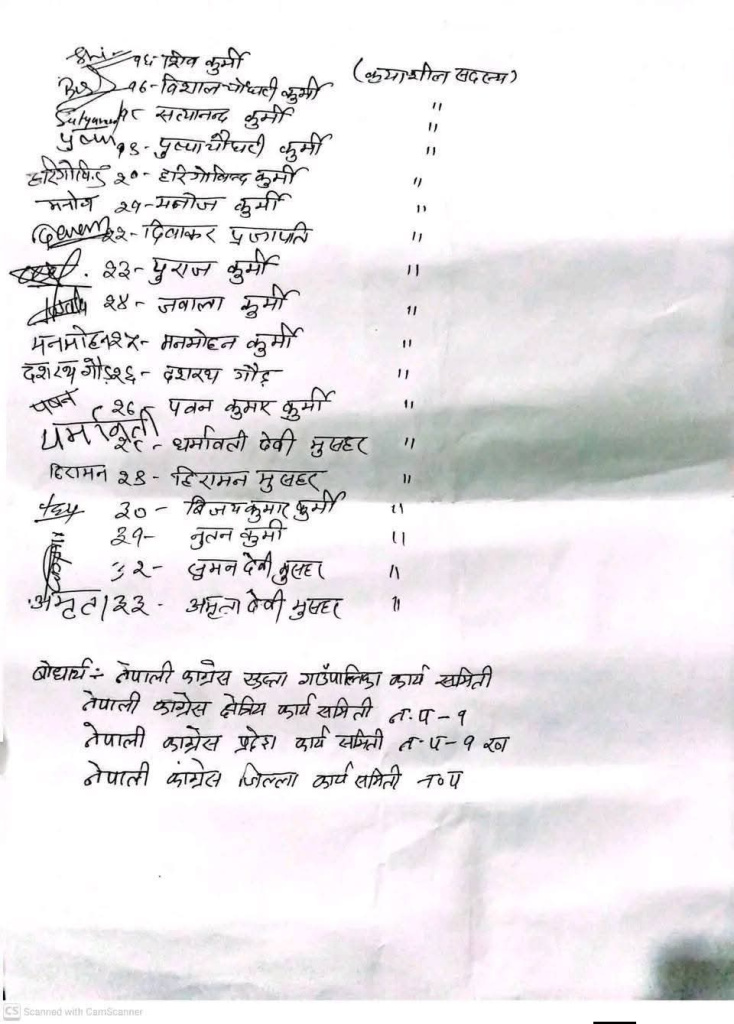 Shi. १६- शिव कुर्मी (कृयाशील सदस्य)
१७- विशाल चौधरी कुर्मी "
Satyanand १८ सत्यानन्द कुर्मी "
१९- पुष्पा चौधरी कुर्मी "
हरिगोविन्द २०- हरिगोविन्द कुर्मी "
मनोज २१- मनोज कुर्मी "
२२- दिवाकर प्रजापति "
२३- युराज कुर्मी "
२४- जवाला कुर्मी "
मनमोहन २५- मनमोहन कुर्मी "
दशरथ गौड २६- दशरथ गौड़ "
पवन २७ पवन कुमार कुर्मी "
धर्मावती २८- धर्मावती देवी मुसहर "
हिरामन २९- हिरामन मुसहर "
३०- बिजय कुमार कुर्मी "
३१- नुतन कुर्मी "
३२- सुमन देवी मुसहर "
अमृता ३३- अमृता देवी मुसहर "
बोधार्थ:- नेपाली कांग्रेस सुस्ता गाउँपालिका कार्य समिती
नेपाली कांग्रेस क्षेत्रिय कार्य समिती न.प-१
नेपाली कांग्रेस प्रदेश कार्य समिती न.प-१ ख
नेपाली कांग्रेस जिल्ला कार्य समिती न०प
CS Scanned with CamScanner